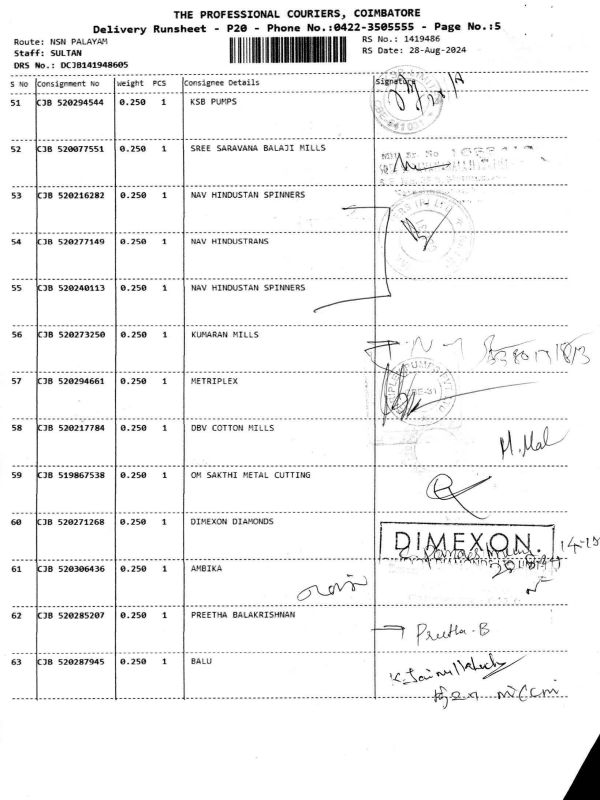 THE PROFESSIONAL COURIERS, COIMBATORE
Delivery Runsheet - P20 - Phone No.:0422-3505555 - Page No.:5
Route: NSN PALAYAM
RS No.: 1419486
Staff: SULTAN
RS Date: 28-Aug-2024
DRS No.: DCJB141948605
S No Consignment No Weight PCS Consignee Details Signature
51 CJB 520294544 0.250 1 KSB PUMPS
52 CJB 520077551 0.250 1 SREE SARAVANA BALAJI MILLS
53 CJB 520216282 0.250 1 NAV HINDUSTAN SPINNERS
54 CJB 520277149 0.250 1 NAV HINDUSTRANS
55 CJB 520240113 0.250 1 NAV HINDUSTAN SPINNERS
56 CJB 520273250 0.250 1 KUMARAN MILLS
57 CJB 520294661 0.250 1 METRIPLEX
58 CJB 520217784 0.250 1 DBV COTTON MILLS
M. Mal
59 CJB 519867538 0.250 1 OM SAKTHI METAL CUTTING
60 CJB 520271268 0.250 1 DIMEXON DIAMONDS
DIMEXON.
61 CJB 520306436 0.250 1 AMBIKA
62 CJB 520285207 0.250 1 PREETHA BALAKRISHNAN
Preetha-B
63 CJB 520287945 0.250 1 BALU